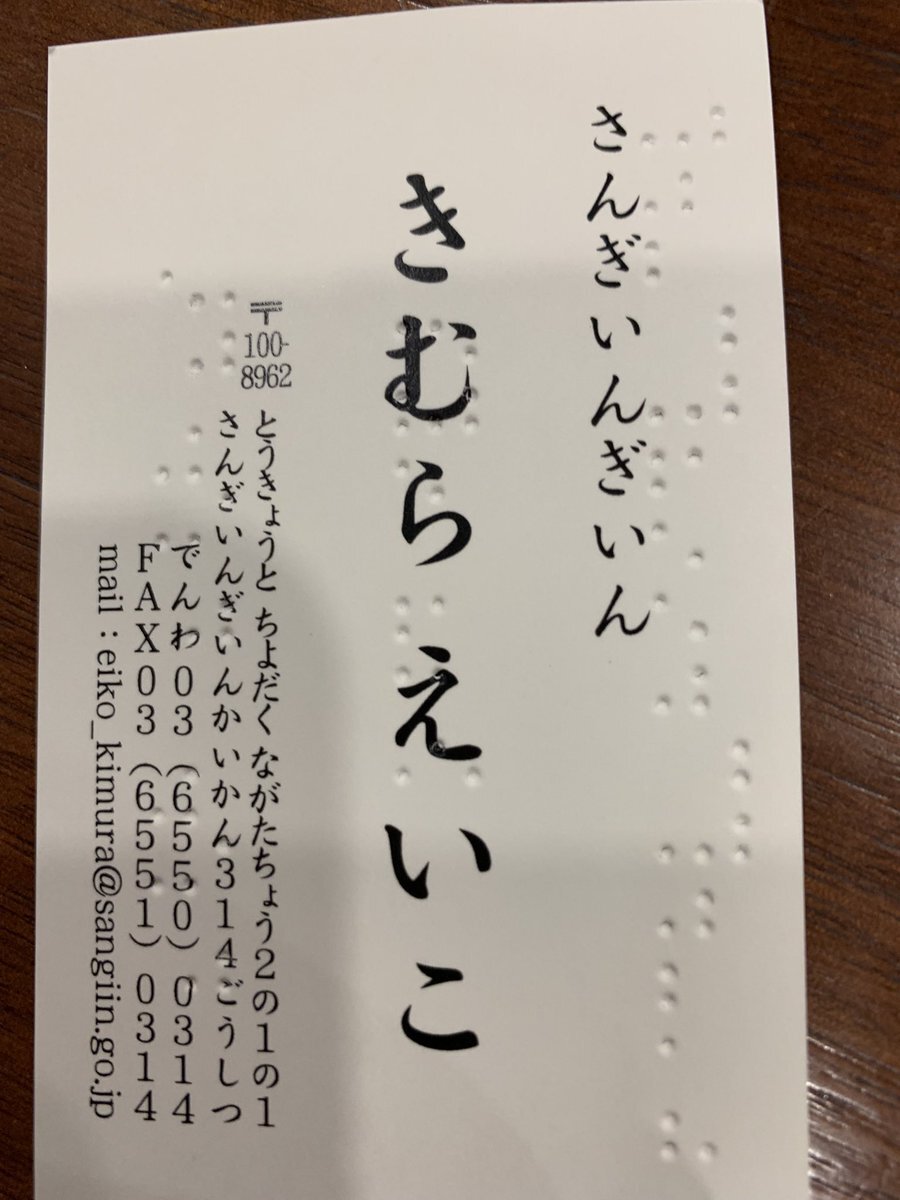 さんぎいんぎいん
きむらえいこ
〒100-8962
とうきょうと ちよだく ながたちょう2の1の1
さんぎいんぎいんかいかん314ごうしつ
でんわ03(6550)0314
FAX03(6551)0314
mail:eiko_kimura@sangiin.go.jp